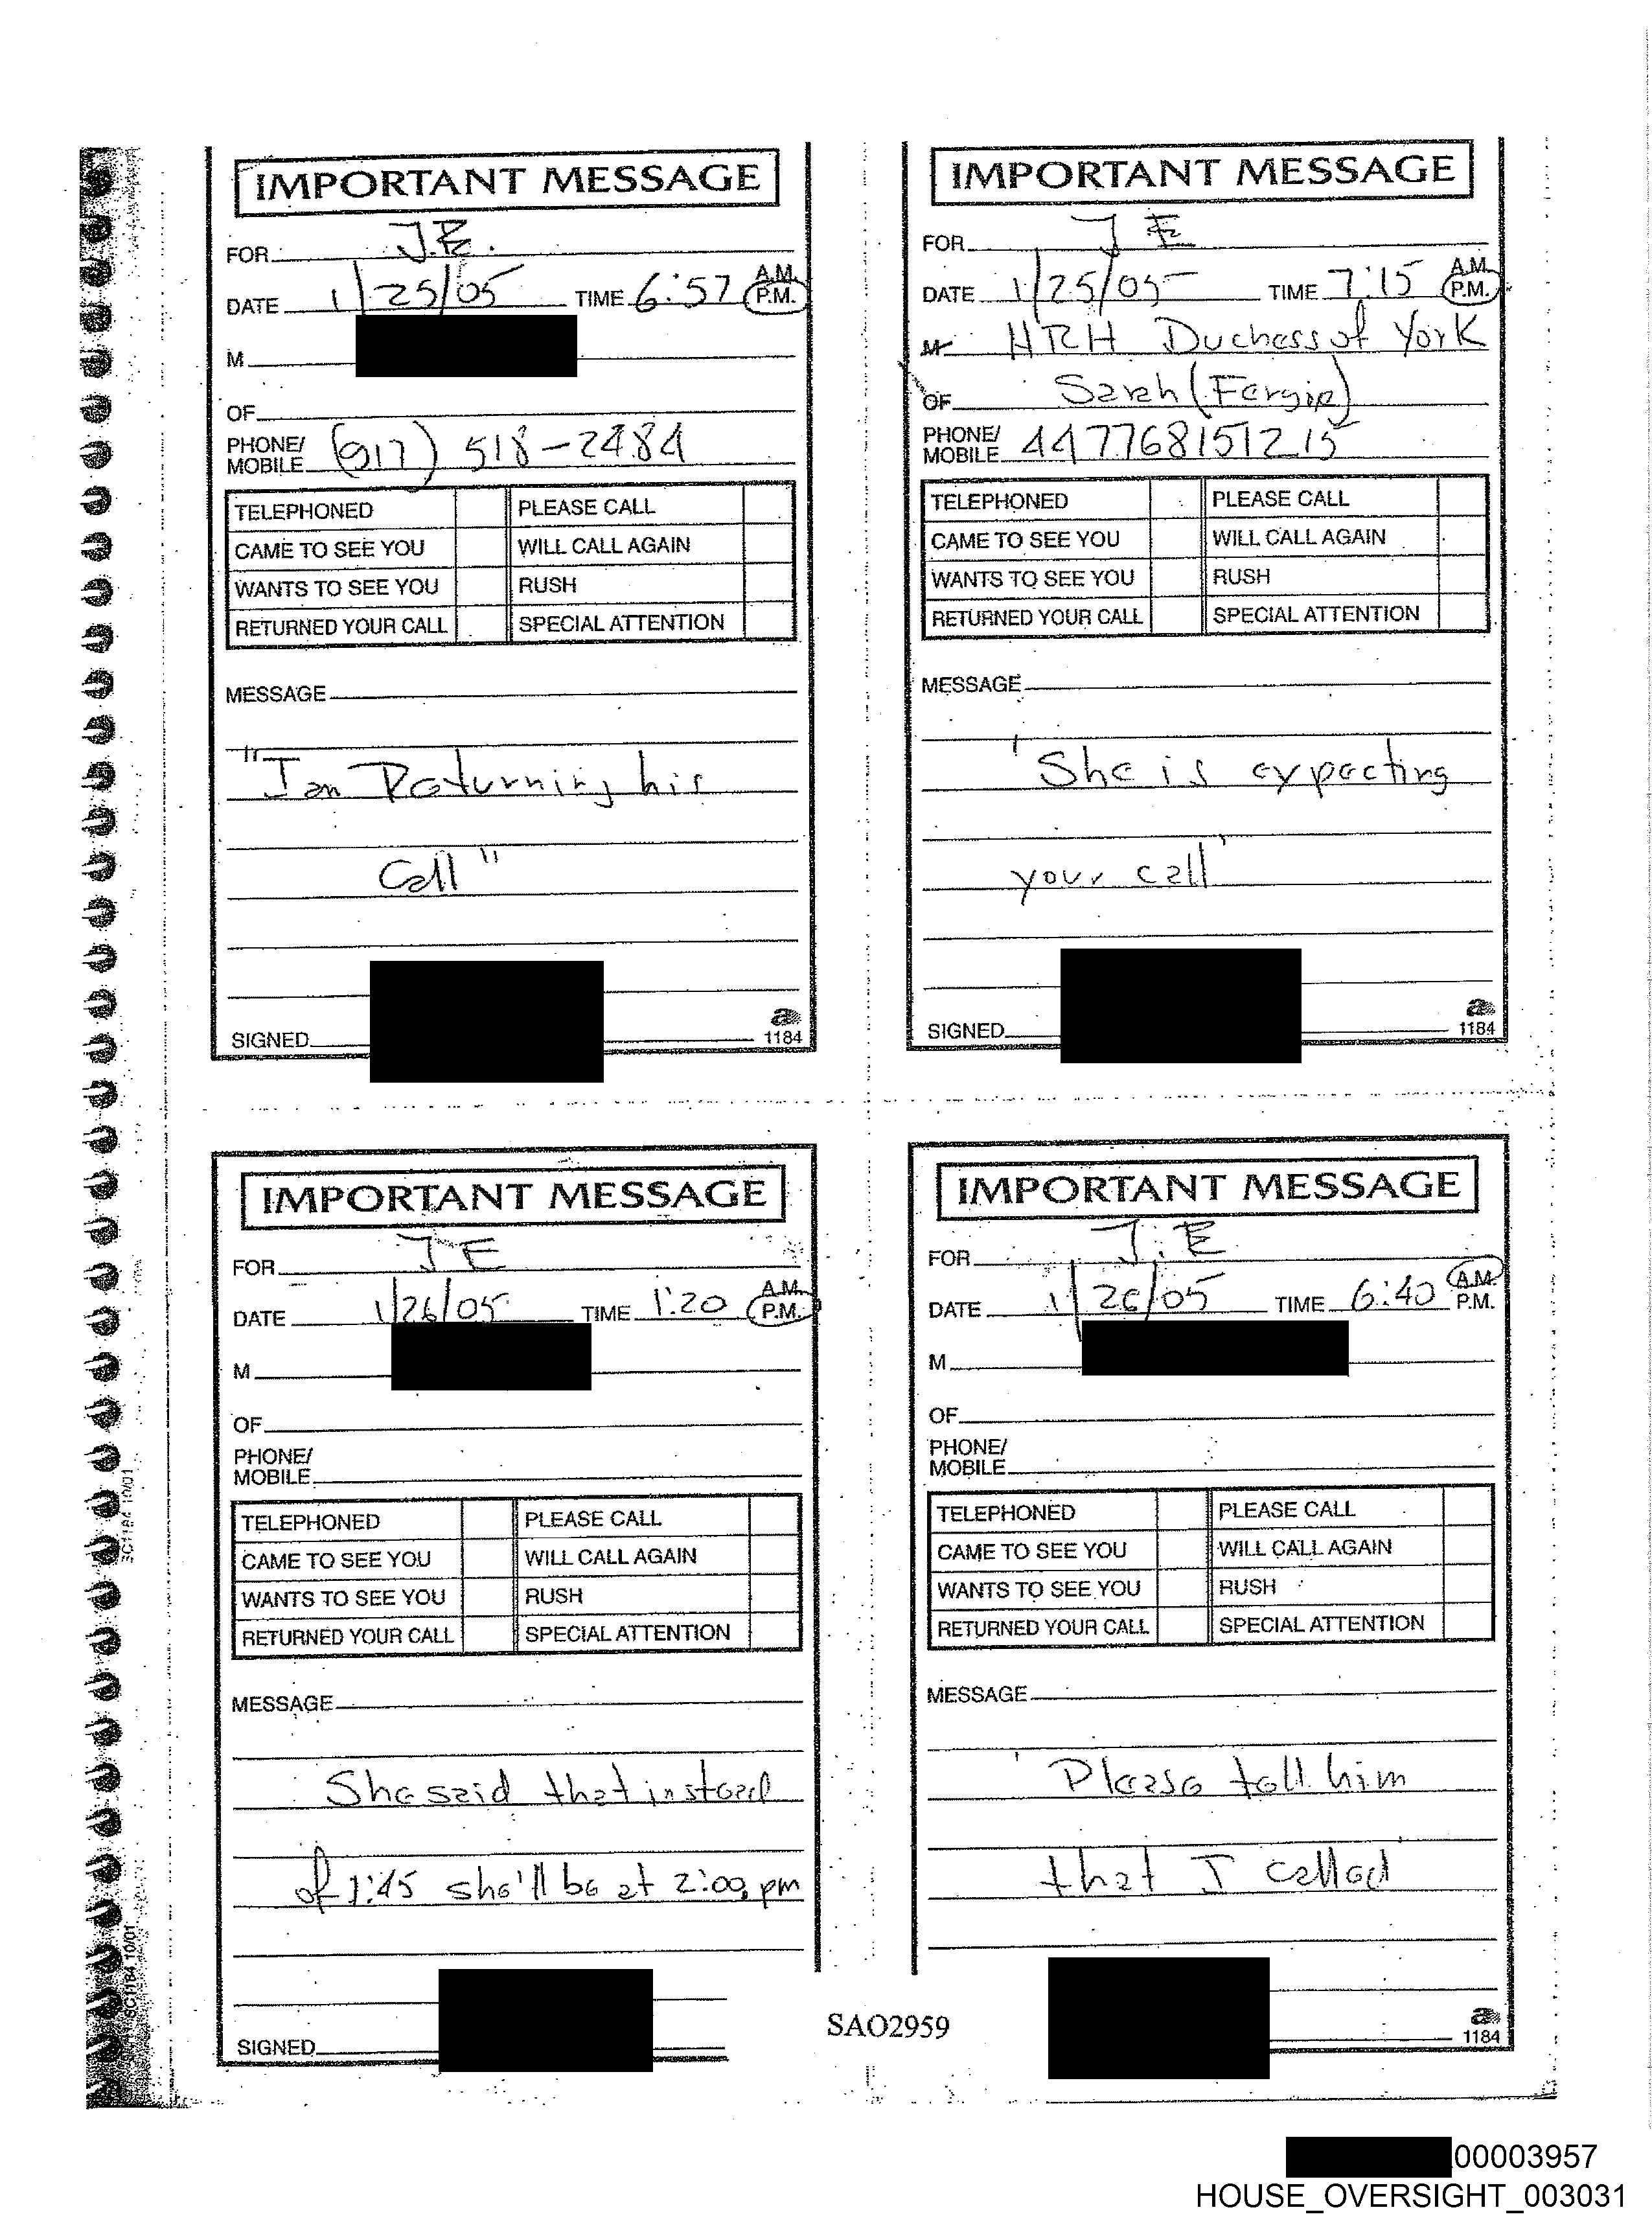 IMPORTANT MESSAGE
FOR J.E.
DATE 1/25/05 TIME 6:57 A.M. P.M.
M
OF
PHONE/
MOBILE (917) 518-2484
TELEPHONED PLEASE CALL
CAME TO SEE YOU WILL CALL AGAIN
WANTS TO SEE YOU RUSH
RETURNED YOUR CALL SPECIAL ATTENTION
MESSAGE
"I am Returning his
Call"
SIGNED
1184
IMPORTANT MESSAGE
FOR J E
DATE 1/25/05 TIME 7:15 A.M. P.M.
M HRH Duchess of York
OF Sarah (Fergie)
PHONE/
MOBILE 447768151215
TELEPHONED PLEASE CALL
CAME TO SEE YOU WILL CALL AGAIN
WANTS TO SEE YOU RUSH
RETURNED YOUR CALL SPECIAL ATTENTION
MESSAGE
'She is expecting
your call'
SIGNED
1184
IMPORTANT MESSAGE
FOR J E
DATE 1/26/05 TIME 1:20 A.M. P.M.
M
OF
PHONE/
MOBILE
TELEPHONED PLEASE CALL
CAME TO SEE YOU WILL CALL AGAIN
WANTS TO SEE YOU RUSH
RETURNED YOUR CALL SPECIAL ATTENTION
MESSAGE
She said that instead
of 1:45 she'll be at 2:00 pm
SIGNED
IMPORTANT MESSAGE
FOR J.E
DATE 1/26/05 TIME 6:40 A.M. P.M.
M
OF
PHONE/
MOBILE
TELEPHONED PLEASE CALL
CAME TO SEE YOU WILL CALL AGAIN
WANTS TO SEE YOU RUSH
RETURNED YOUR CALL SPECIAL ATTENTION
MESSAGE
'Please tell him
that I called
1184
SC1184 10/01
SC1184 10/01
SAO2959
00003957
HOUSE_OVERSIGHT_003031